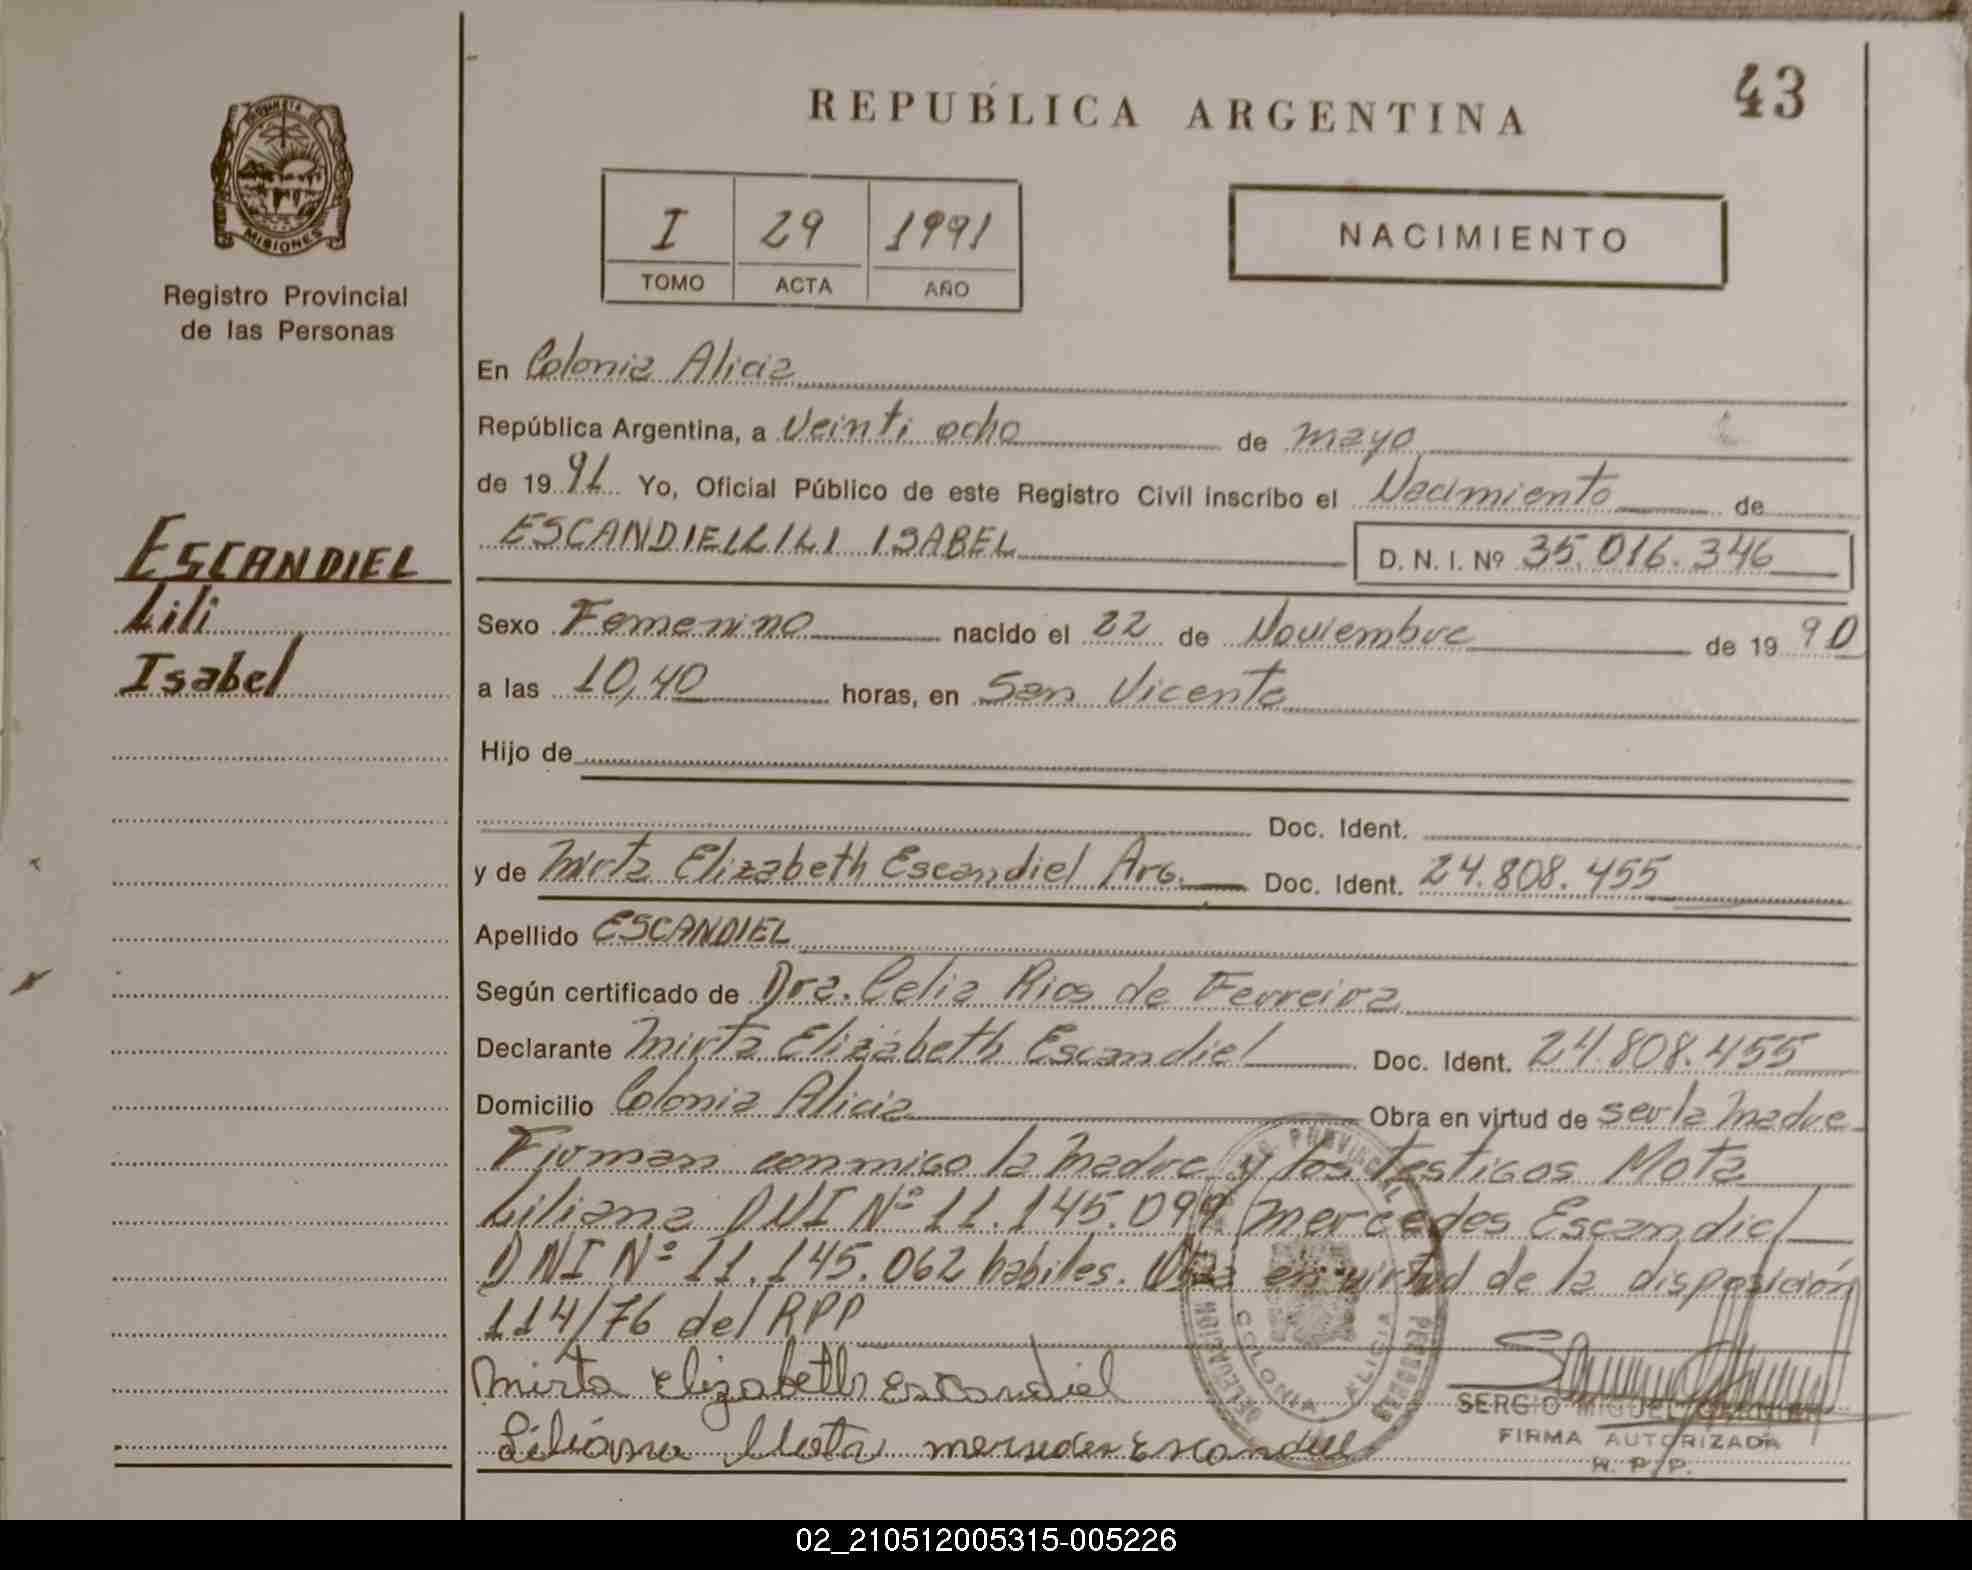 43
REPUBLICA ARGENTINA
MISIONES
Registro Provincial
de las Personas
I 29 1991
TOMO ACTA AÑO
NACIMIENTO
ESCANDIEL
Lili
Isabel
En Colonia Alicia
República Argentina, a Veinti ocho de mayo
de 1991 Yo, Oficial Público de este Registro Civil inscribo el Nacimiento de
ESCANDIEL LILI ISABEL D. N. I. Nº 35.016.346
Sexo Femenino nacido el 22 de Noviembre de 1990
a las 10,40 horas, en San Vicente
Hijo de
Doc. Ident.
y de Mirta Elizabeth Escandiel Arg. Doc. Ident. 24.808.455
Apellido ESCANDIEL
Según certificado de Dra. Celia Rios de Ferreira
Declarante Mirta Elizabeth Escandiel Doc. Ident. 24.808.455
Domicilio Colonia Alicia Obra en virtud de ser la Madre
Firman conmigo la Madre y los testigos Mota
Liliana DNI Nº 11.145.099 Mercedes Escandiel
DNI Nº 11.145.062 habiles. Obra en virtud de la disposición
114/76 del RPP
Mirta Elizabeth Escandiel
Liliana Mota mersedes Escandiel
COLONIA ALICIA
SERGIO MIGUEL
FIRMA AUTORIZADA
R. P. P.
02_210512005315-005226